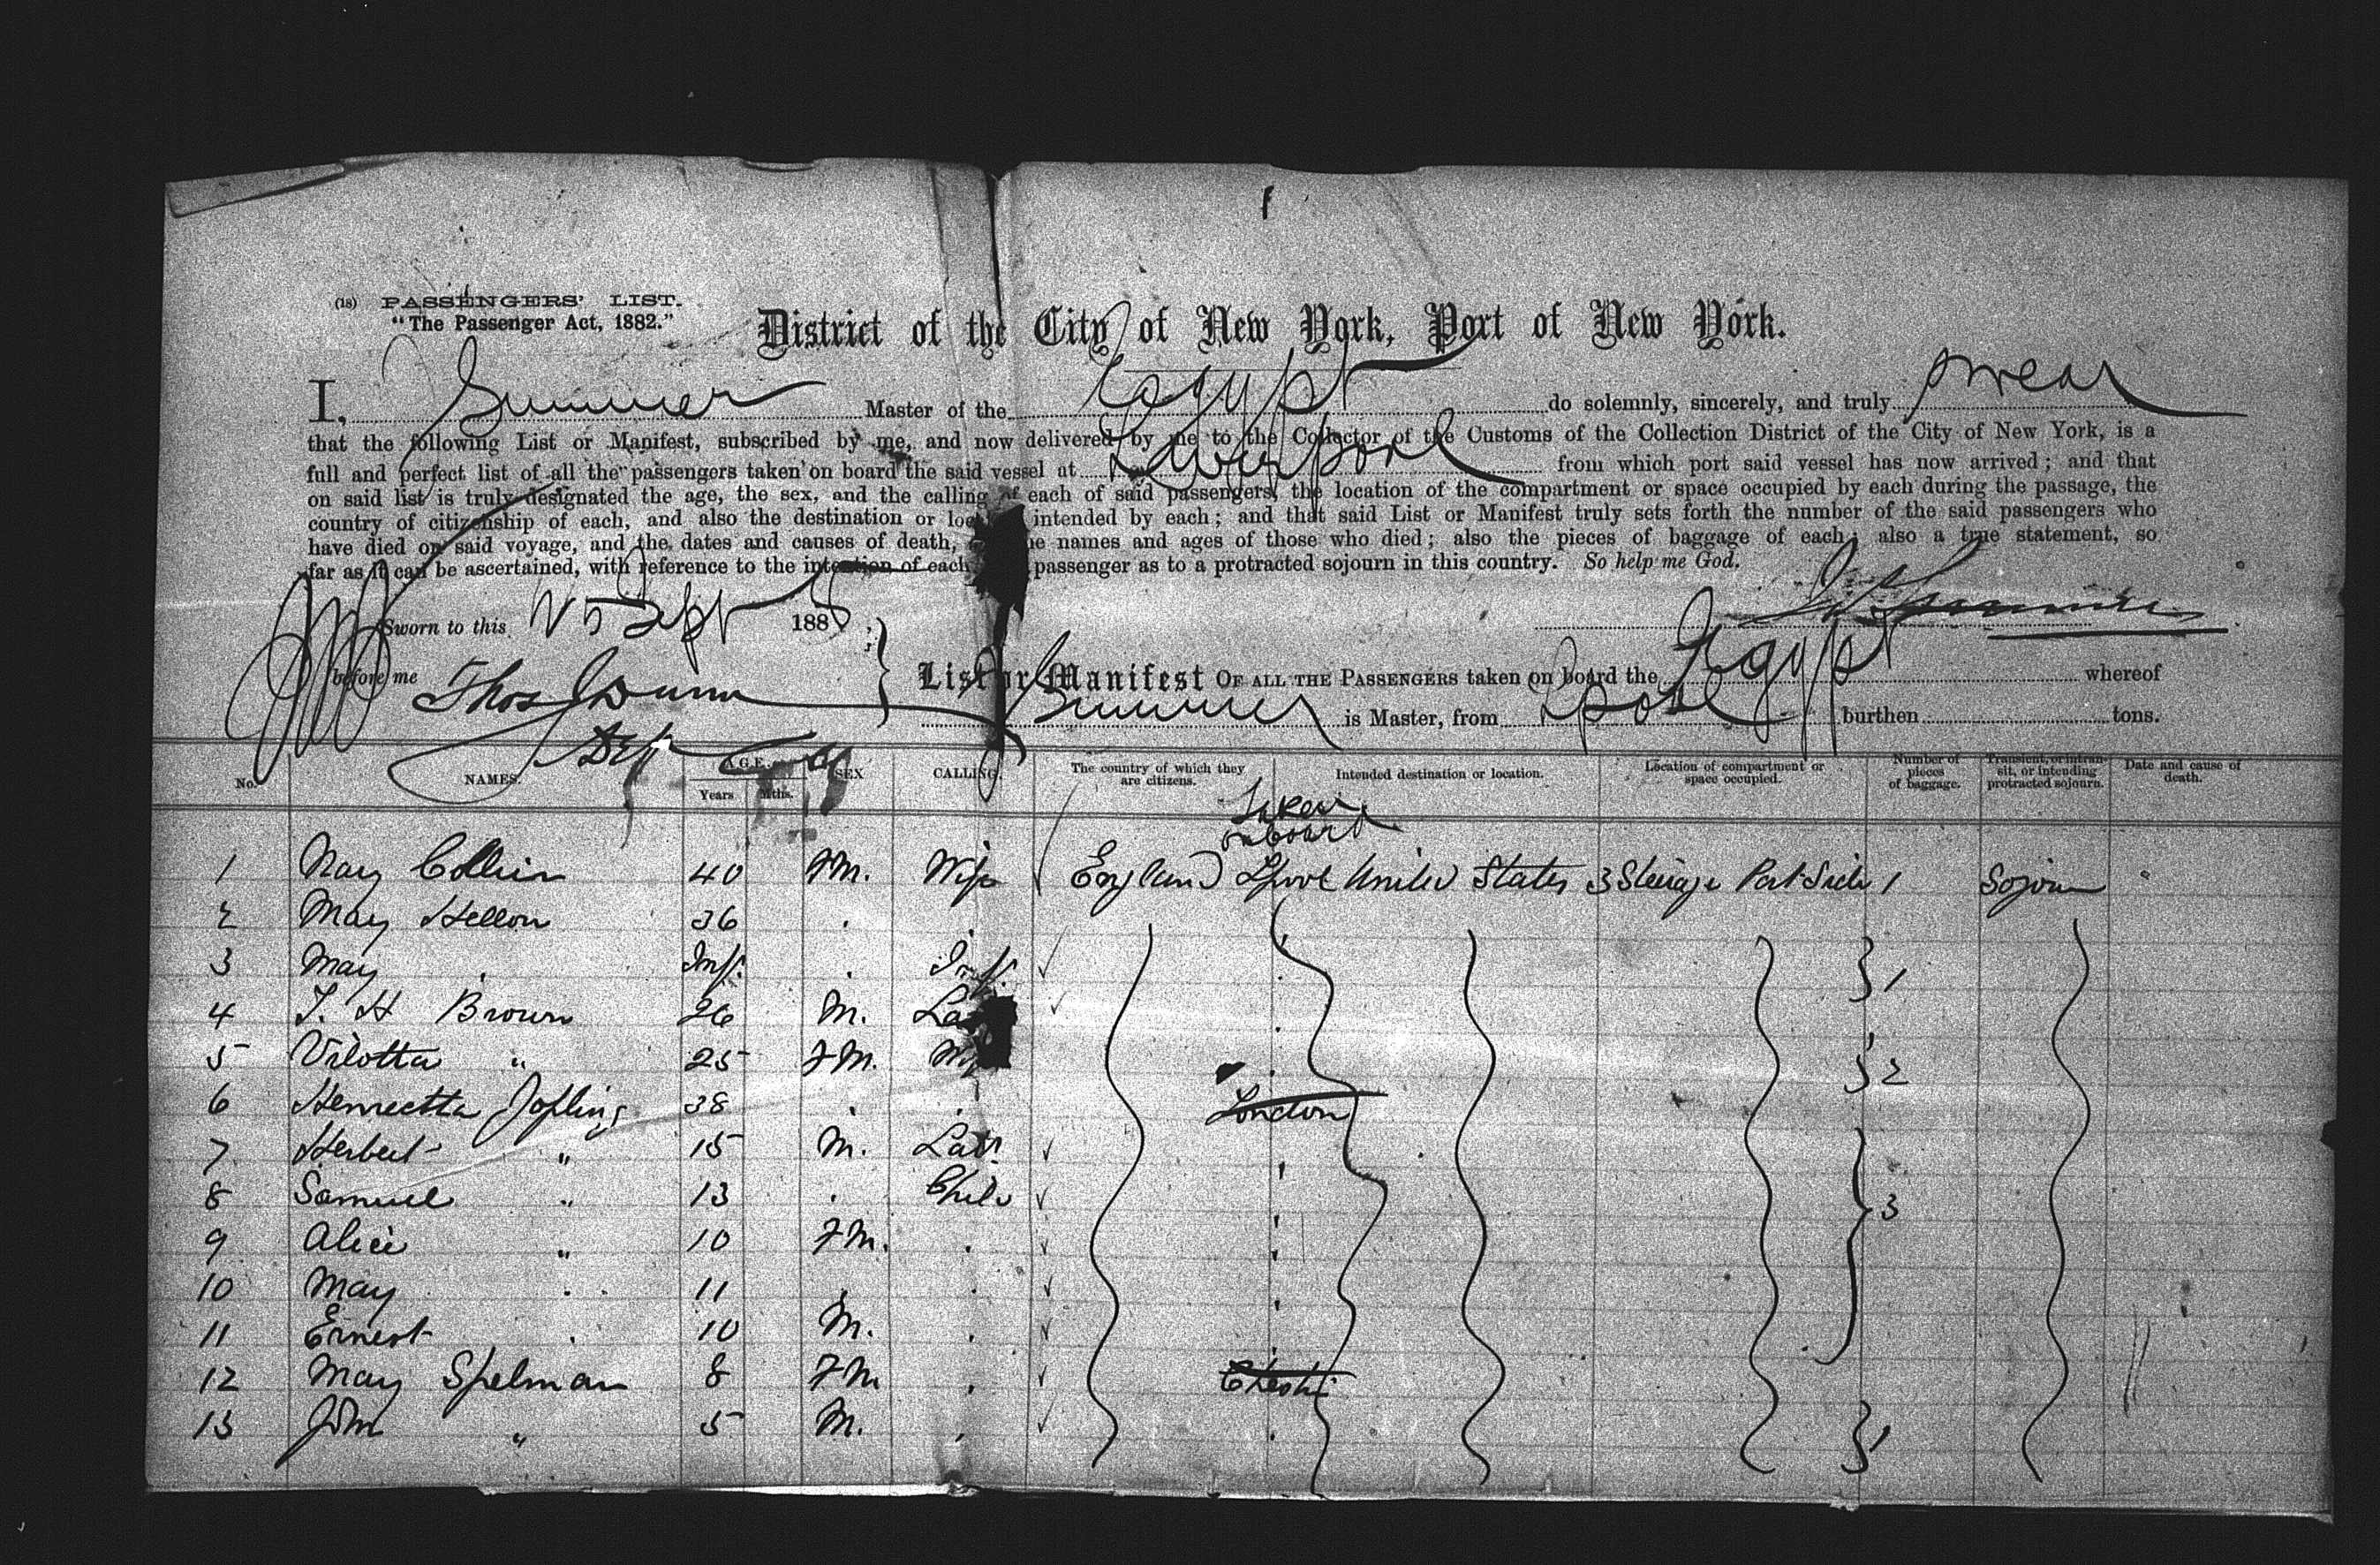 1
(18) PASSENGERS' LIST.
"The Passenger Act, 1882."
District of the City of New York, Port of New York.
I, Summer Master of the Egypt do solemnly, sincerely, and truly swear
that the following List or Manifest, subscribed by me, and now delivered by me to the Collector of the Customs of the Collection District of the City of New York, is a
full and perfect list of all the passengers taken on board the said vessel at Liverpool from which port said vessel has now arrived; and that
on said list is truly designated the age, the sex, and the calling of each of said passengers, the location of the compartment or space occupied by each during the passage, the
country of citizenship of each, and also the destination or intended by each; and that said List or Manifest truly sets forth the number of the said passengers who
have died on said voyage, and the dates and causes of death, names and ages of those who died; also the pieces of baggage of each; also a true statement, so
far as it can be ascertained, with reference to the intention of each passenger as to a protracted sojourn in this country. So help me God.
Sworn to this 25 Sept 188
before me Thos Dunn
List or Manifest OF ALL THE PASSENGERS taken on board the Egypt whereof
Summer is Master, from Lpool burthen tons.
No. NAMES. AGE. Years Mths. SEX CALLING. The country of which they are citizens. Intended destination or location. Location of compartment or space occupied. Number of pieces of baggage. Transient, or in transit, or intending protracted sojourn. Date and cause of death.
Taken
onboard
1 Mary Collier 40 FM. Wife England Lpool United States 3 Steerage Port Side 1 Sojourn
2 May Hellon 36 .
3 May . Inf. . Inf. 1
4 T. H Brown 26 M.
5 Vilotta " 25 FM. 2
6 Henrietta Jopling 38 . . London
7 Herbert " 15 M. Labr
8 Samuel " 13 . Child 3
9 Alice " 10 FM. .
10 May . 11 . .
11 Ernest . 10 M. .
12 May Spelman 8 FM .
13 John " 5 M. . 1